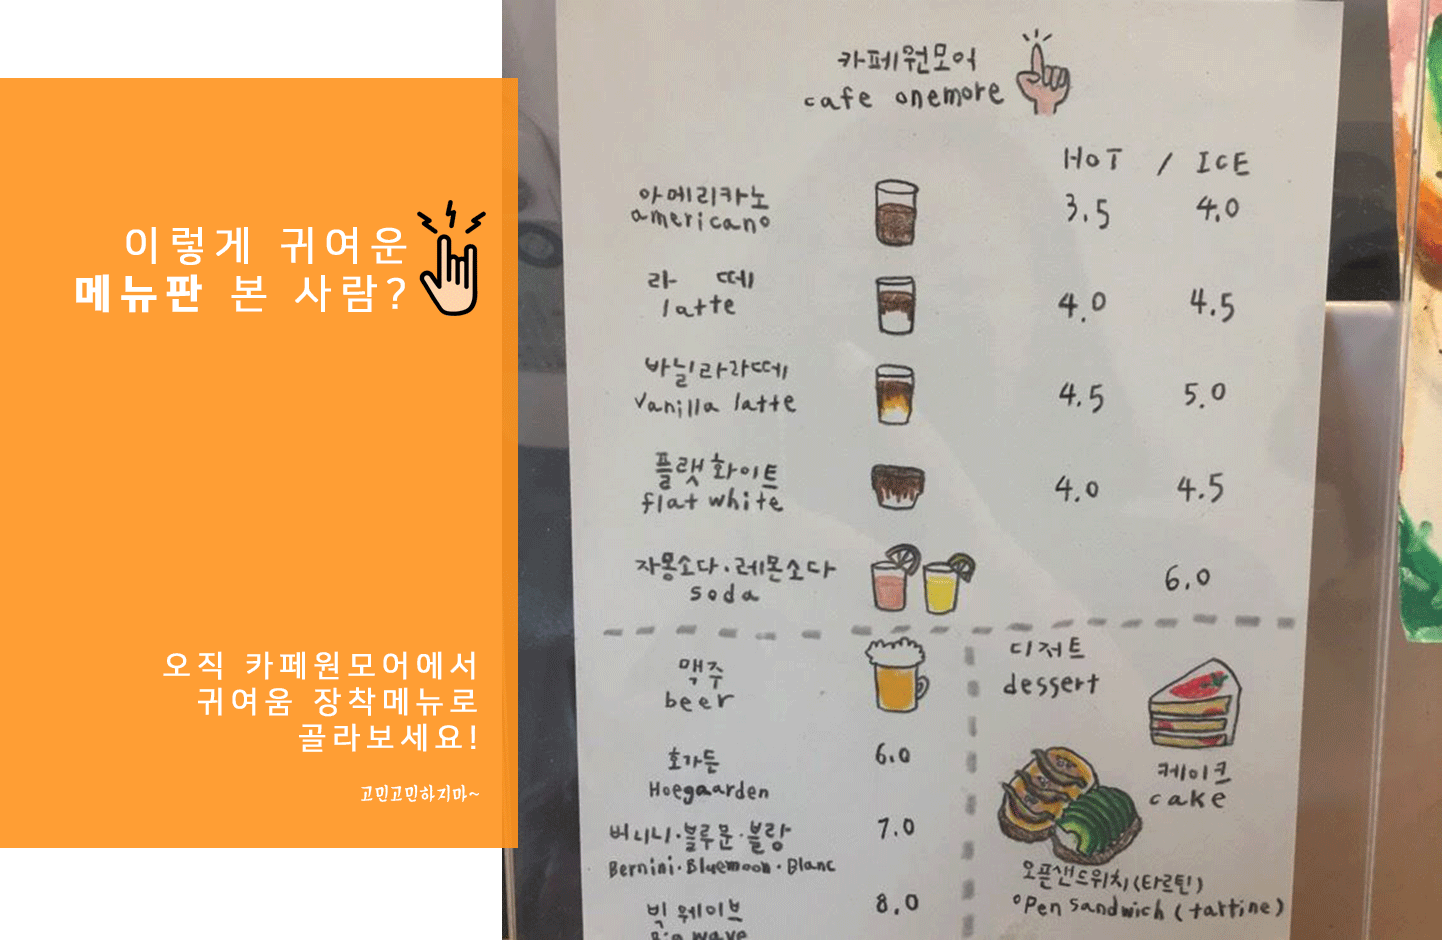 이렇게 귀여운
메뉴판 본 사람?
오직 카페원모어에서
귀여움 장착메뉴로
골라보세요!
고민고민하지마~
카페원모어
cafe onemore
HOT / ICE
아메리카노
americano
3.5 4.0
라떼
latte
4.0 4.5
바닐라라떼
vanilla latte
4.5 5.0
플랫화이트
flat white
4.0 4.5
자몽소다·레몬소다
soda
6.0
맥주
beer
호가든
Hoegaarden
6.0
버니니·블루문·블랑
Bernini·Bluemoon·Blanc
7.0
빅 웨이브
Big wave
8.0
디저트
dessert
케이크
cake
오픈샌드위치(타르틴)
open sandwich (tartine)